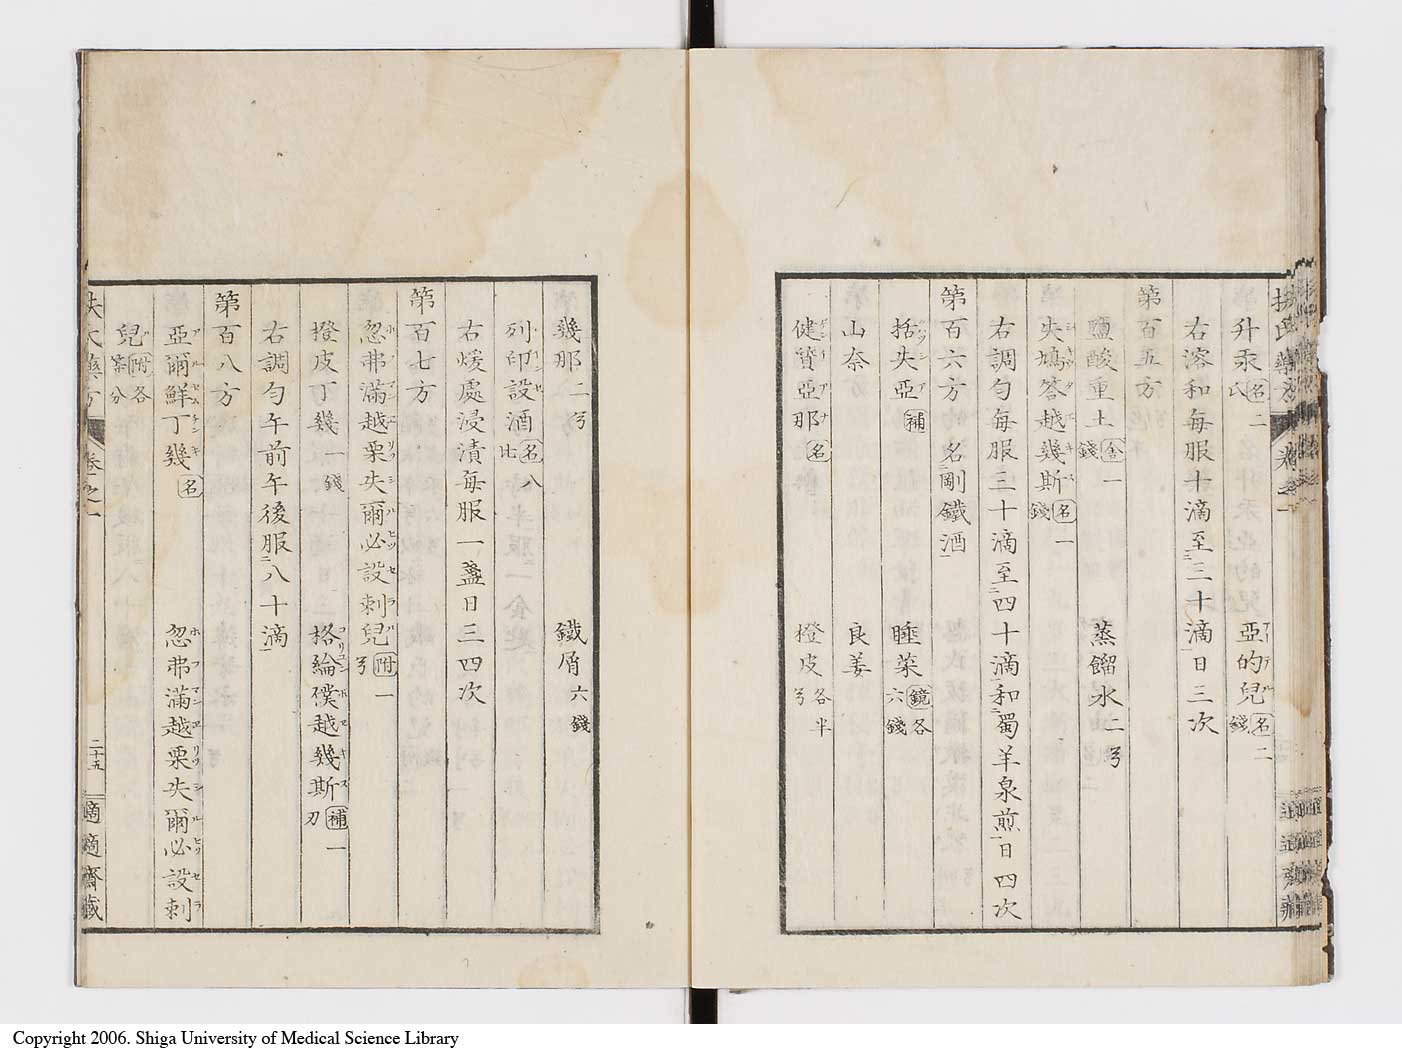 扶氏藥方
升汞名二氏 亞的兒名二錢
右溶和每服十滴至三十滴日三次
第百五方
鹽酸重土舎一錢 蒸餾水二弓
失鳩答越幾斯名一錢
右調勻每服三十滴至四十滴和蜀羊泉煎日四次
第百六方 名剛鐵酒
括失亞補 睡菜鏡各六錢
山奈 良姜
健質亞那名 橙皮各半弓
幾那二弓 鐵屑六錢
列印設酒名八比
右煖處浸漬每服一盞日三四次
第百七方
忽弗滿越栗失爾必設剌兒附一弓
橙皮丁幾一錢 格綸僕越幾斯補一刀
右調勻午前午後服八十滴
第百八方
亞爾鮮丁幾名 忽弗滿越栗失爾必設剌
兒附各等分
扶氏藥方 卷之一 二十五 適適齋藏
Copyright 2006. Shiga University of Medical Science Library